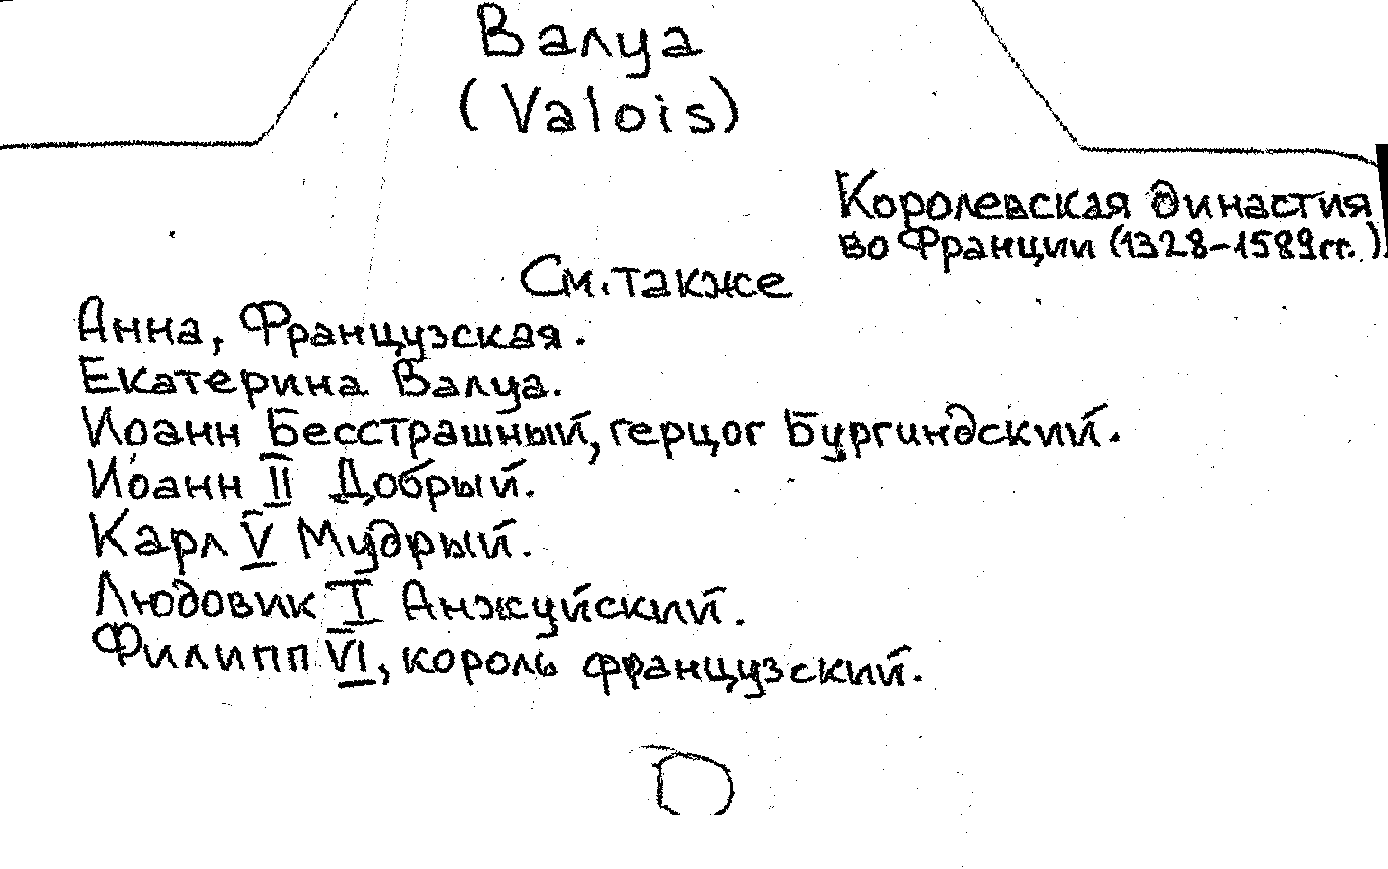 Валуа
(Valois)
Королевская династия
во Франции (1328-1589гг.)
См. также
Анна, Французская.
Екатерина Валуа.
Иоанн Бесстрашный, герцог Бургиндский.
Иоанн II Добрый.
Карл V Мудрый.
Людовик I Анжуйский.
Филипп VI, король французский.